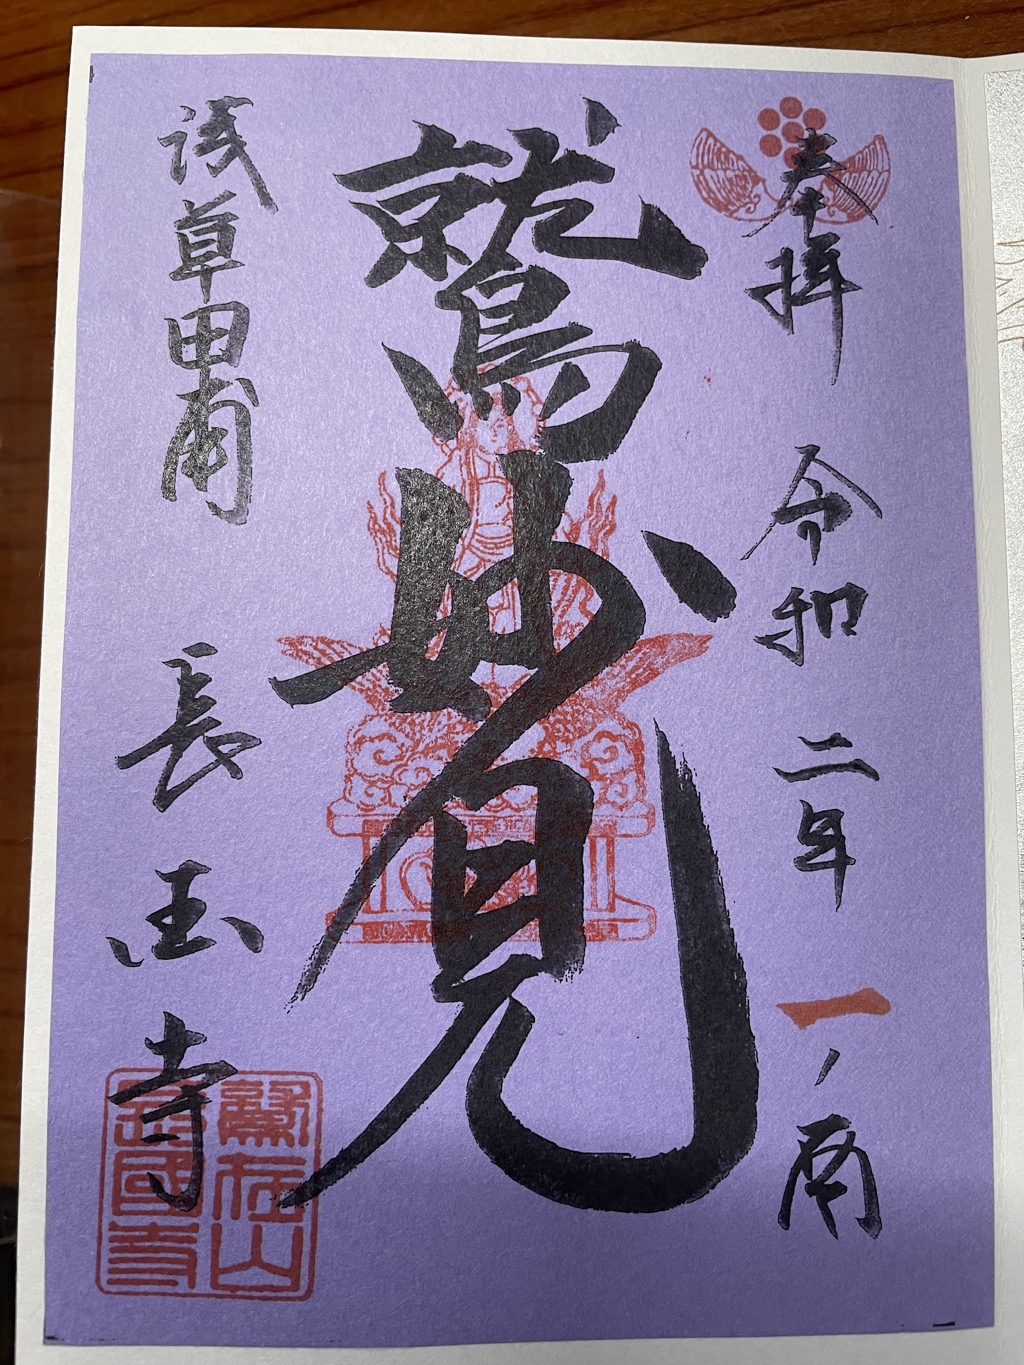 奉拝 令和二年 一ノ酉
鷲妙見
浅草田甫 長国寺
鷲在山
長國寺